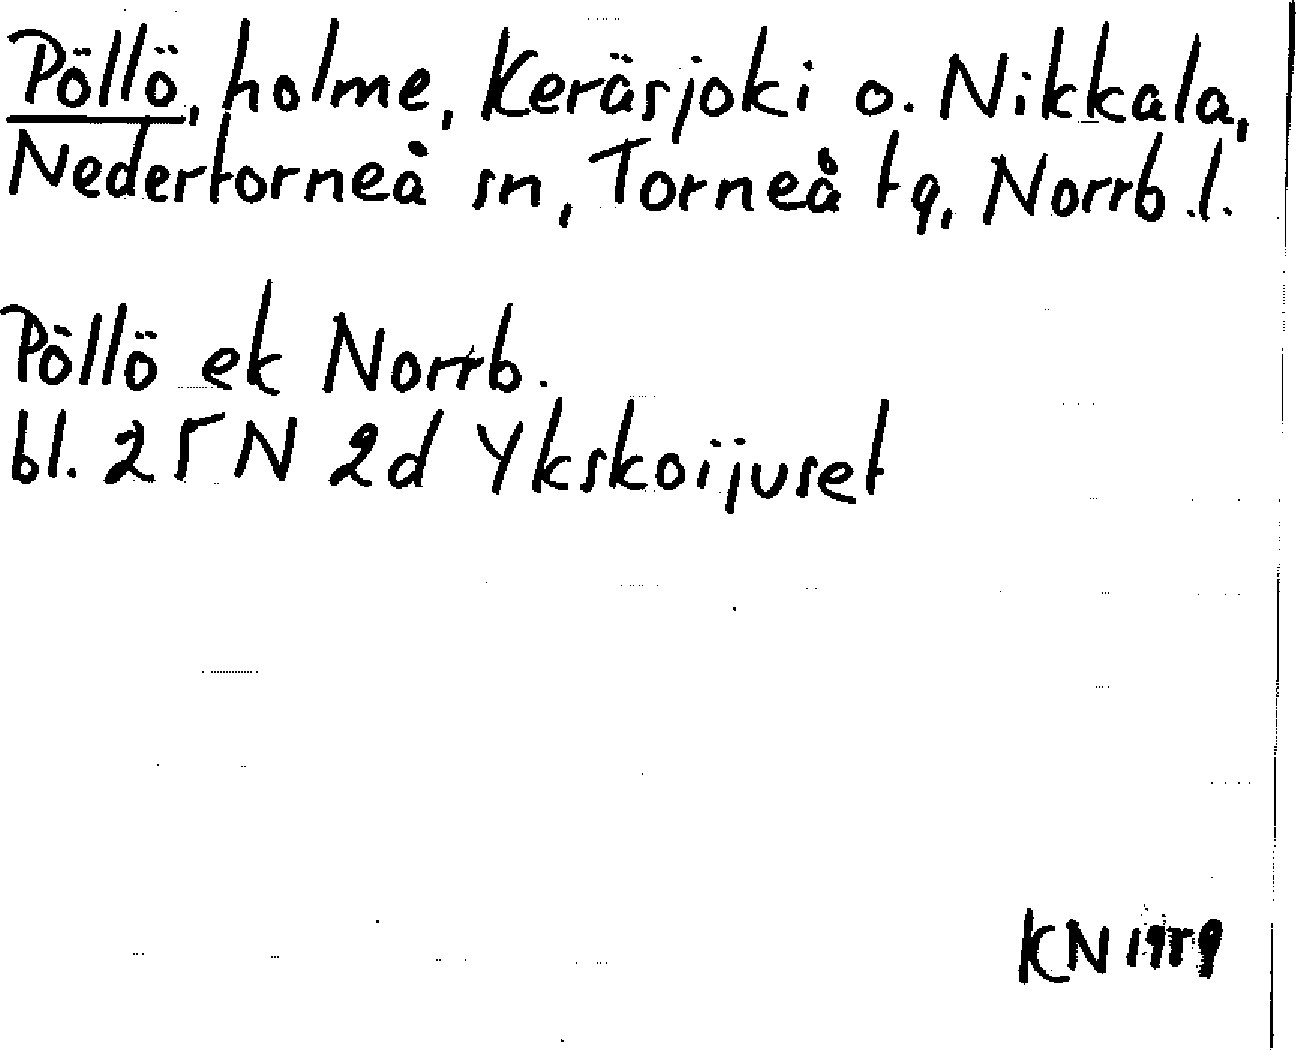 Pöllö, holme, Keräsjoki o. Nikkala,
Nedertorneå sn, Torneå tg, Norrb.l.
Pöllö ek Norrb.
bl. 25 N 2d Ykskoijuset
KN 1959